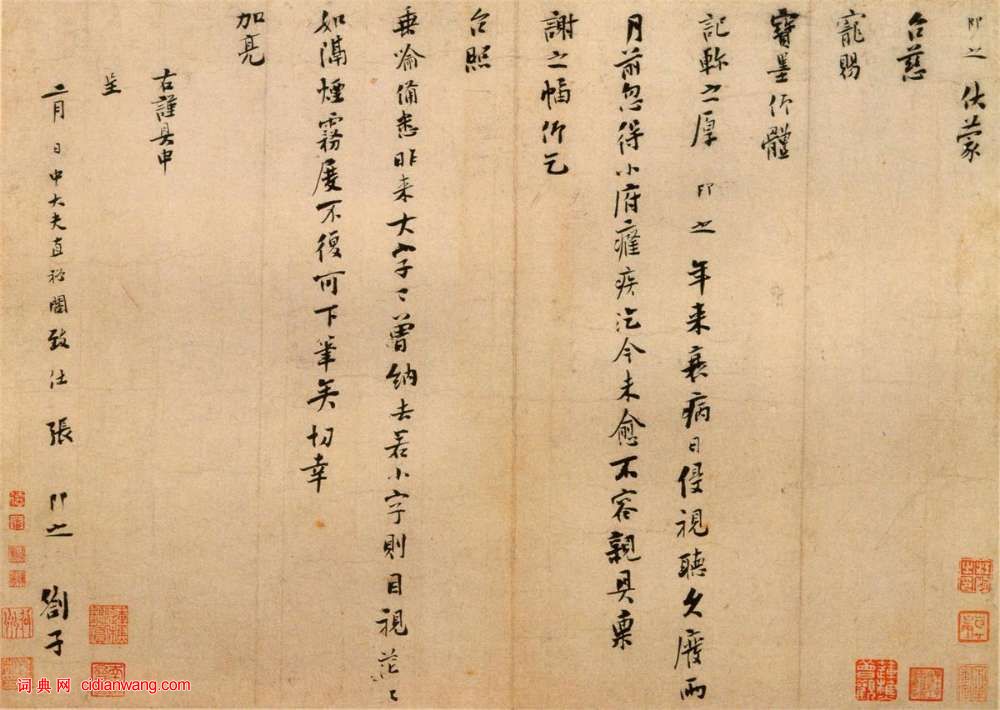 即之 伏蒙
台慈
寵賜
寶墨仰體
記軫之厚 即之 年来衰病日侵視聽久廢兩
月前忽得小府癃疾迄今未愈不容親具稟
謝之幅仰乞
台照
垂喻備悉昨来大字〻曾納去若小字則目視茫〻
如隔煙霧屡不復可下筆矣切幸
加亮
右謹具申
呈
二月 日中大夫直秘閣致仕 張 即之 劄子
词典网 cidianwang.com